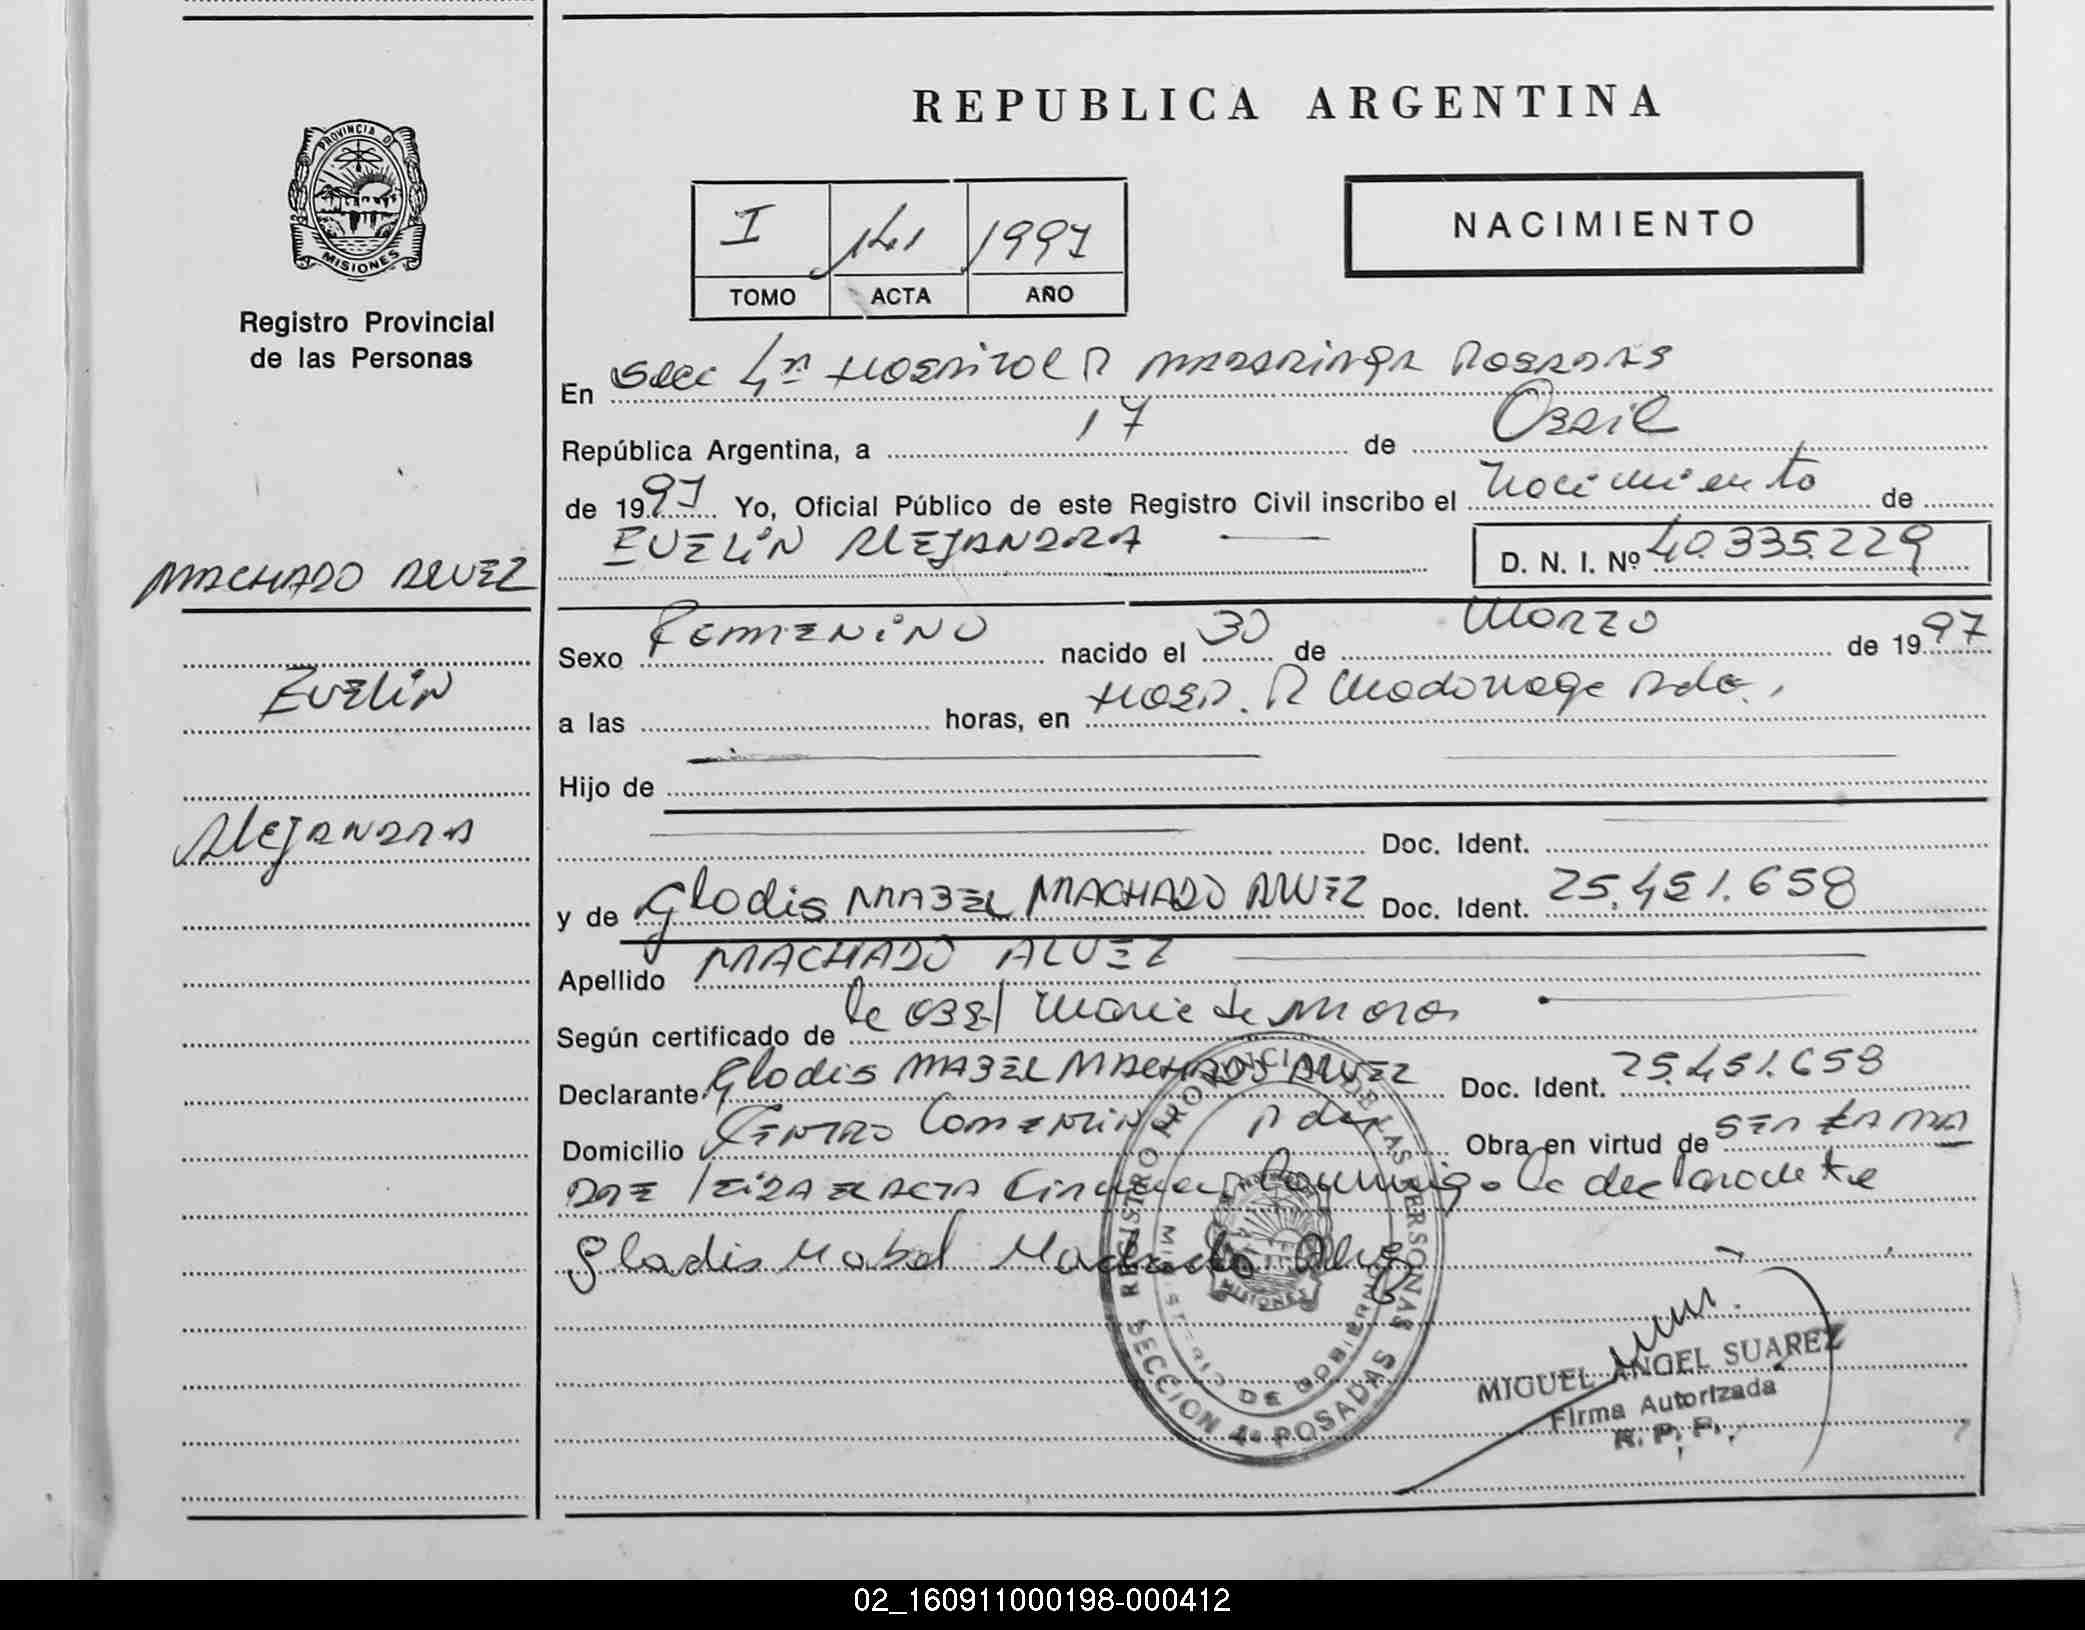 REPUBLICA ARGENTINA
PROVINCIA DE
MISIONES
Registro Provincial
de las Personas
I 141 1997
TOMO ACTA AÑO
NACIMIENTO
En Secc 4ª Hospital R Madariaga Posadas
República Argentina, a 17 de Abril
de 1997 Yo, Oficial Público de este Registro Civil inscribo el Nacimiento de
EVELIN ALEJANDRA D. N. I. Nº 40.335.229
MACHADO ALVEZ
Evelin
Alejandra
Sexo Femenino nacido el 30 de Marzo de 1997
a las horas, en Hosp. R Madariaga Pdas.
Hijo de
Doc. Ident.
y de Gladis MABEL MACHADO ALVEZ Doc. Ident. 25.451.658
Apellido MACHADO ALVEZ
Según certificado de la Obst Maria de
Declarante Gladis MABEL MACHADO ALVEZ Doc. Ident. 25.451.658
Domicilio Centro Pdas Obra en virtud de ser la MADRE
Leida el Acta firma conmigo la declarante
Gladis Mabel Machado Alvez
REGISTRO PROVINCIAL DE LAS PERSONAS
MINISTERIO DE GOBIERNO
MISIONES
SECCION 4ª POSADAS
MIGUEL ANGEL SUAREZ
Firma Autorizada
R. P. P.
02_160911000198-000412